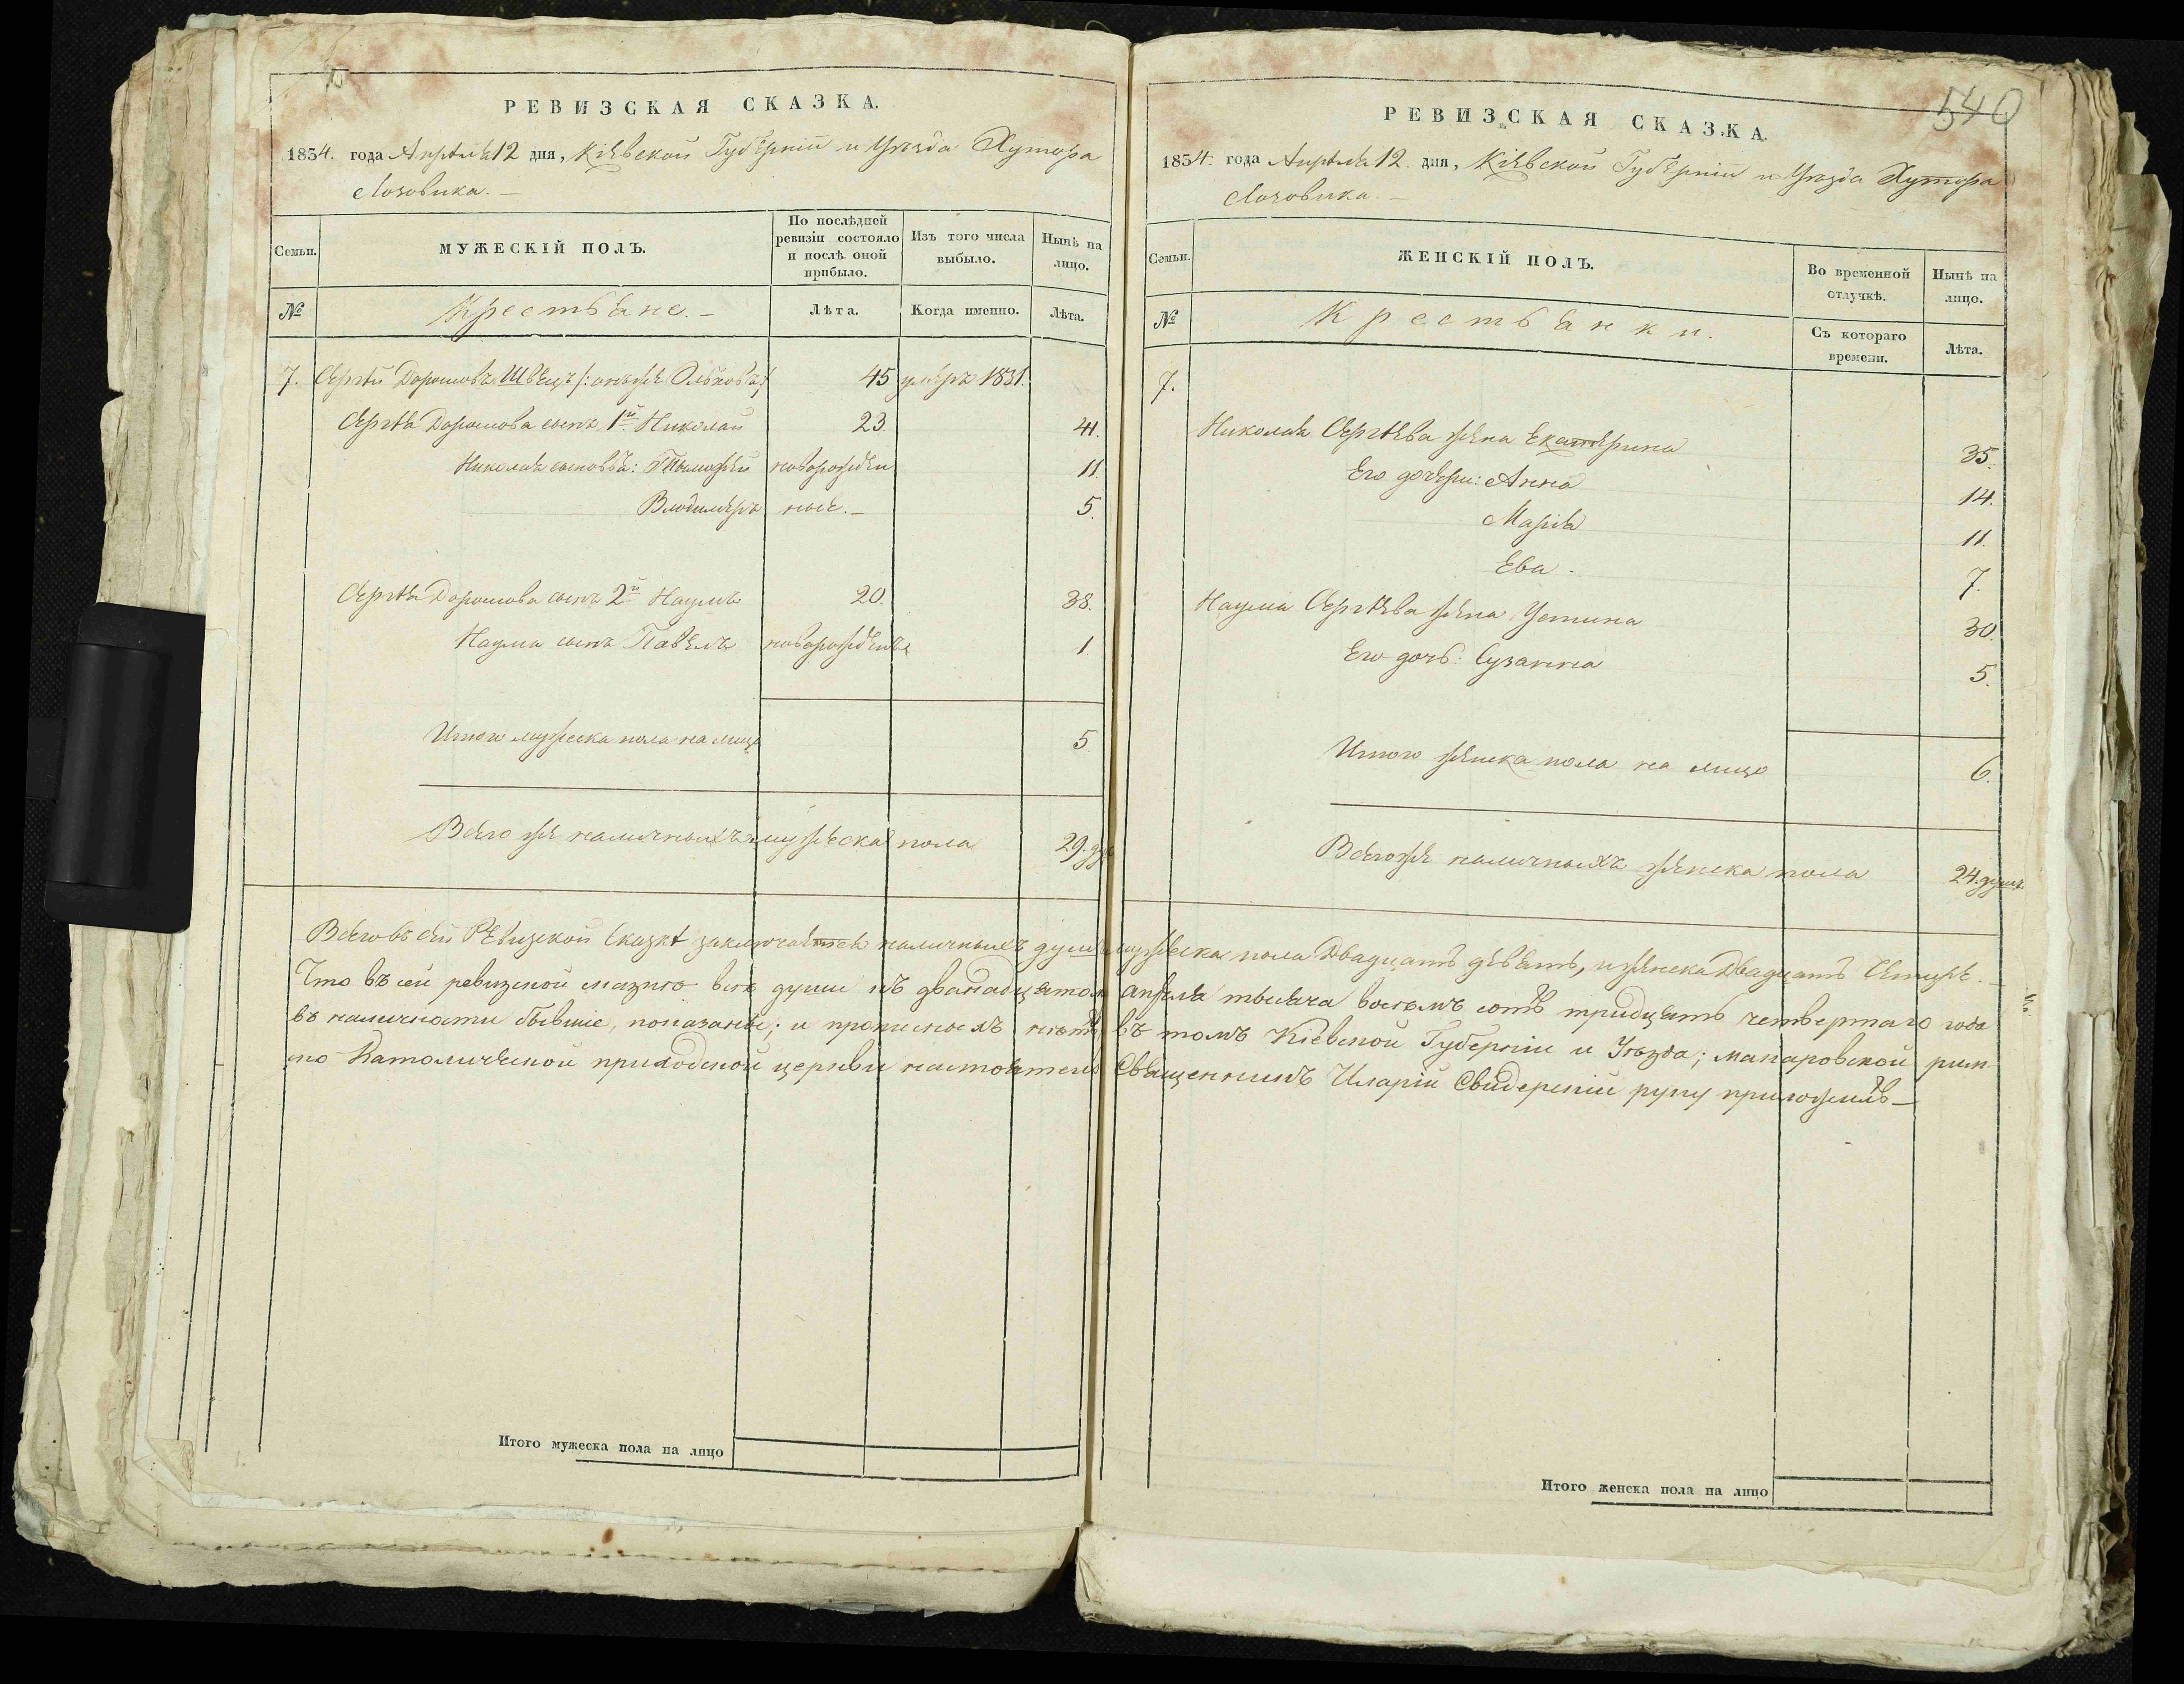 РЕВИЗСКАЯ СКАЗКА.
1834. года Апрѣля 12 дня, Кіевской Губерніи и Уѣзда Хутора
Лозовика. —
Семьи. МУЖЕСКІЙ ПОЛЪ. По послѣдней ревизіи состояло и послѣ оной прибыло. Изъ того числа выбыло. Нынѣ на лицо.
№ Крестьяне. — Лѣта. Когда именно. Лѣта.
7. Сергѣй Дорошовъ Швецъ /: онъ же 45 умеръ 1831.
Сергѣя Дорошова сынъ 1й Николай 23. 41.
Николая сыновья: Тимофей новорожден 11.
Владимеръ ные. — 5.
Сергѣя Дорошова сынъ 2й Наумъ 20. 38.
Наума сынъ Павелъ новорожденъ 1.
Итого мужеска пола на лицо 5.
Всего же наличныхъ мужеска пола 29. ду
РЕВИЗСКАЯ СКАЗКА.
540
1834. года Апрѣля 12. дня, Кіевской Губерніи и Уѣзда Хутора
Лозовика. —
Семьи. ЖЕНСКІЙ ПОЛЪ. Во временной отлучкѣ. Нынѣ на лицо.
№ Крестьянки. Съ котораго времени. Лѣта.
7.
Николая Сергѣева жена Екатерина 35.
Его дочери: Анна 14.
Марія 11.
Ева. 7.
Наума Сергѣева жена Устина 30.
Его дочь: Сузанна 5.
Итого женска пола на лицо 6.
Всего же наличныхъ женска пола 24. душъ
Всего въ сей Ревизской Сказкѣ заключается наличныхъ душъ мужеска пола Двадцать девять, и женска Двадцать Четыре. —
Что въ сей ревизской сказкѣ всѣ души къ двенадцатому апреля тысяча восемъ сотъ тридцать четвертаго года
въ наличности бывшіе, показаны; и прописныхъ нѣтъ въ томъ Кіевской Губерніи и Уѣзда; макаровской рим
ско Католической приходской церкви настоятель Священникъ Иларій Свидерскій руку приложилъ —
Итого мужеска пола на лицо
Итого женска пола на лицо